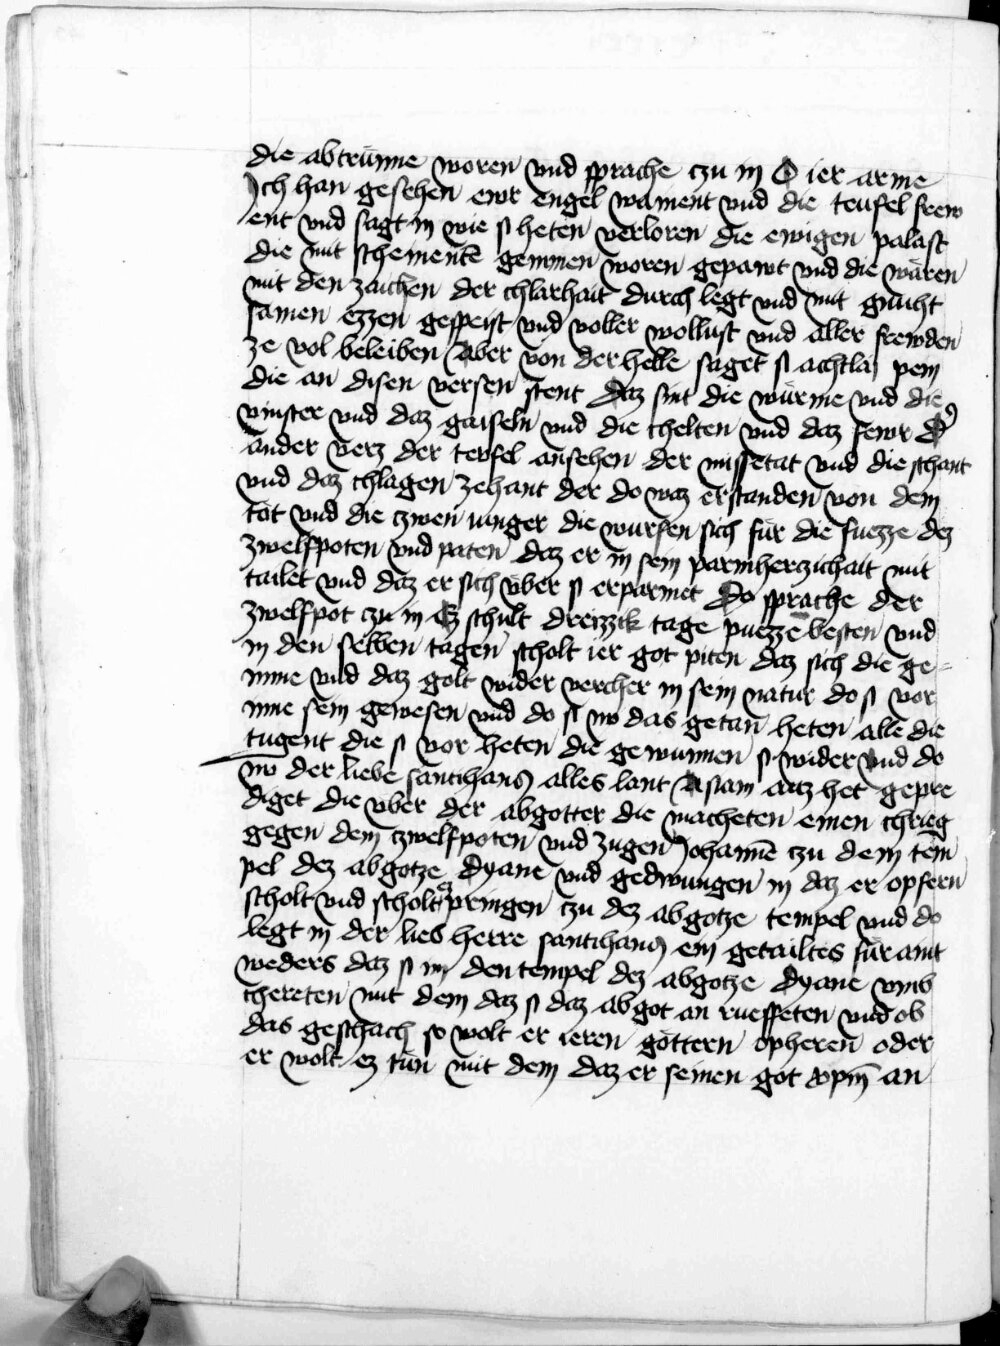 die abtrünne woren vnd sprache czu in O ier arme
Ich han gesehen ewr engel wainent vnd die teufel frew
ent vnd sagt in wie si heten verloren die ewigen palast
die mit schementen gemmen woren gepawt vnd die wären
mit den zaichen der chlarhait durch legt vnd mit gnucht
samen ezzen gespeist vnd voller wollust vnd aller frewden
ze vol beleiben Aber von der helle saget si achtlaj pein
die an disen versen stent Daz sint die würme vnd die
vinster vnd daz gaiseln vnd die chelten vnd daz fewr Dʼ
ander verz der tevfel ansehen der missetat vnd die schant
vnd daz chlagen zehant der do waz erstanden von dem
tot vnd die czwen iunger die wurfen sich für die fuezze dez
zwelfpoten vnd paten daz er in sein parmherczichait mit
tailet vnd daz er sich über si erparmet Do sprache der
zwelfpot czu in Ez schult dreizzik tage puezze besten vnd
in den selben tagen scholt ier got piten daz sich die ge-
rinne vnd daz golt wider vercher in sein natur do si vor
inne sein gewesen vnd do si nv das getan heten alle die
tugent die si vor heten die gewunnen si wider vnd do
nv der liebe santihans alles lant Asiam aucz het gepre
diget die über der abgotter die macheten einen chrieg
gegen dem czwelfpoten vnd zugen Johanne czu dem tem
pel dez abgotze dyane vnd gedwungen in daz er opfern
scholt vnd scholt ez pringen czu dez abgotze tempel vnd do
legt in der lieb herre santihans ein getailtes für aint
weders daz si in den tempel dez abgotze dyane vmb
chereten mit dem daz si daz abgot an rueffeten vnd ob
das geschach so wolt er ieren göttern opheren oder
er wolt ez tün mit dem daz er seinen got xpm an